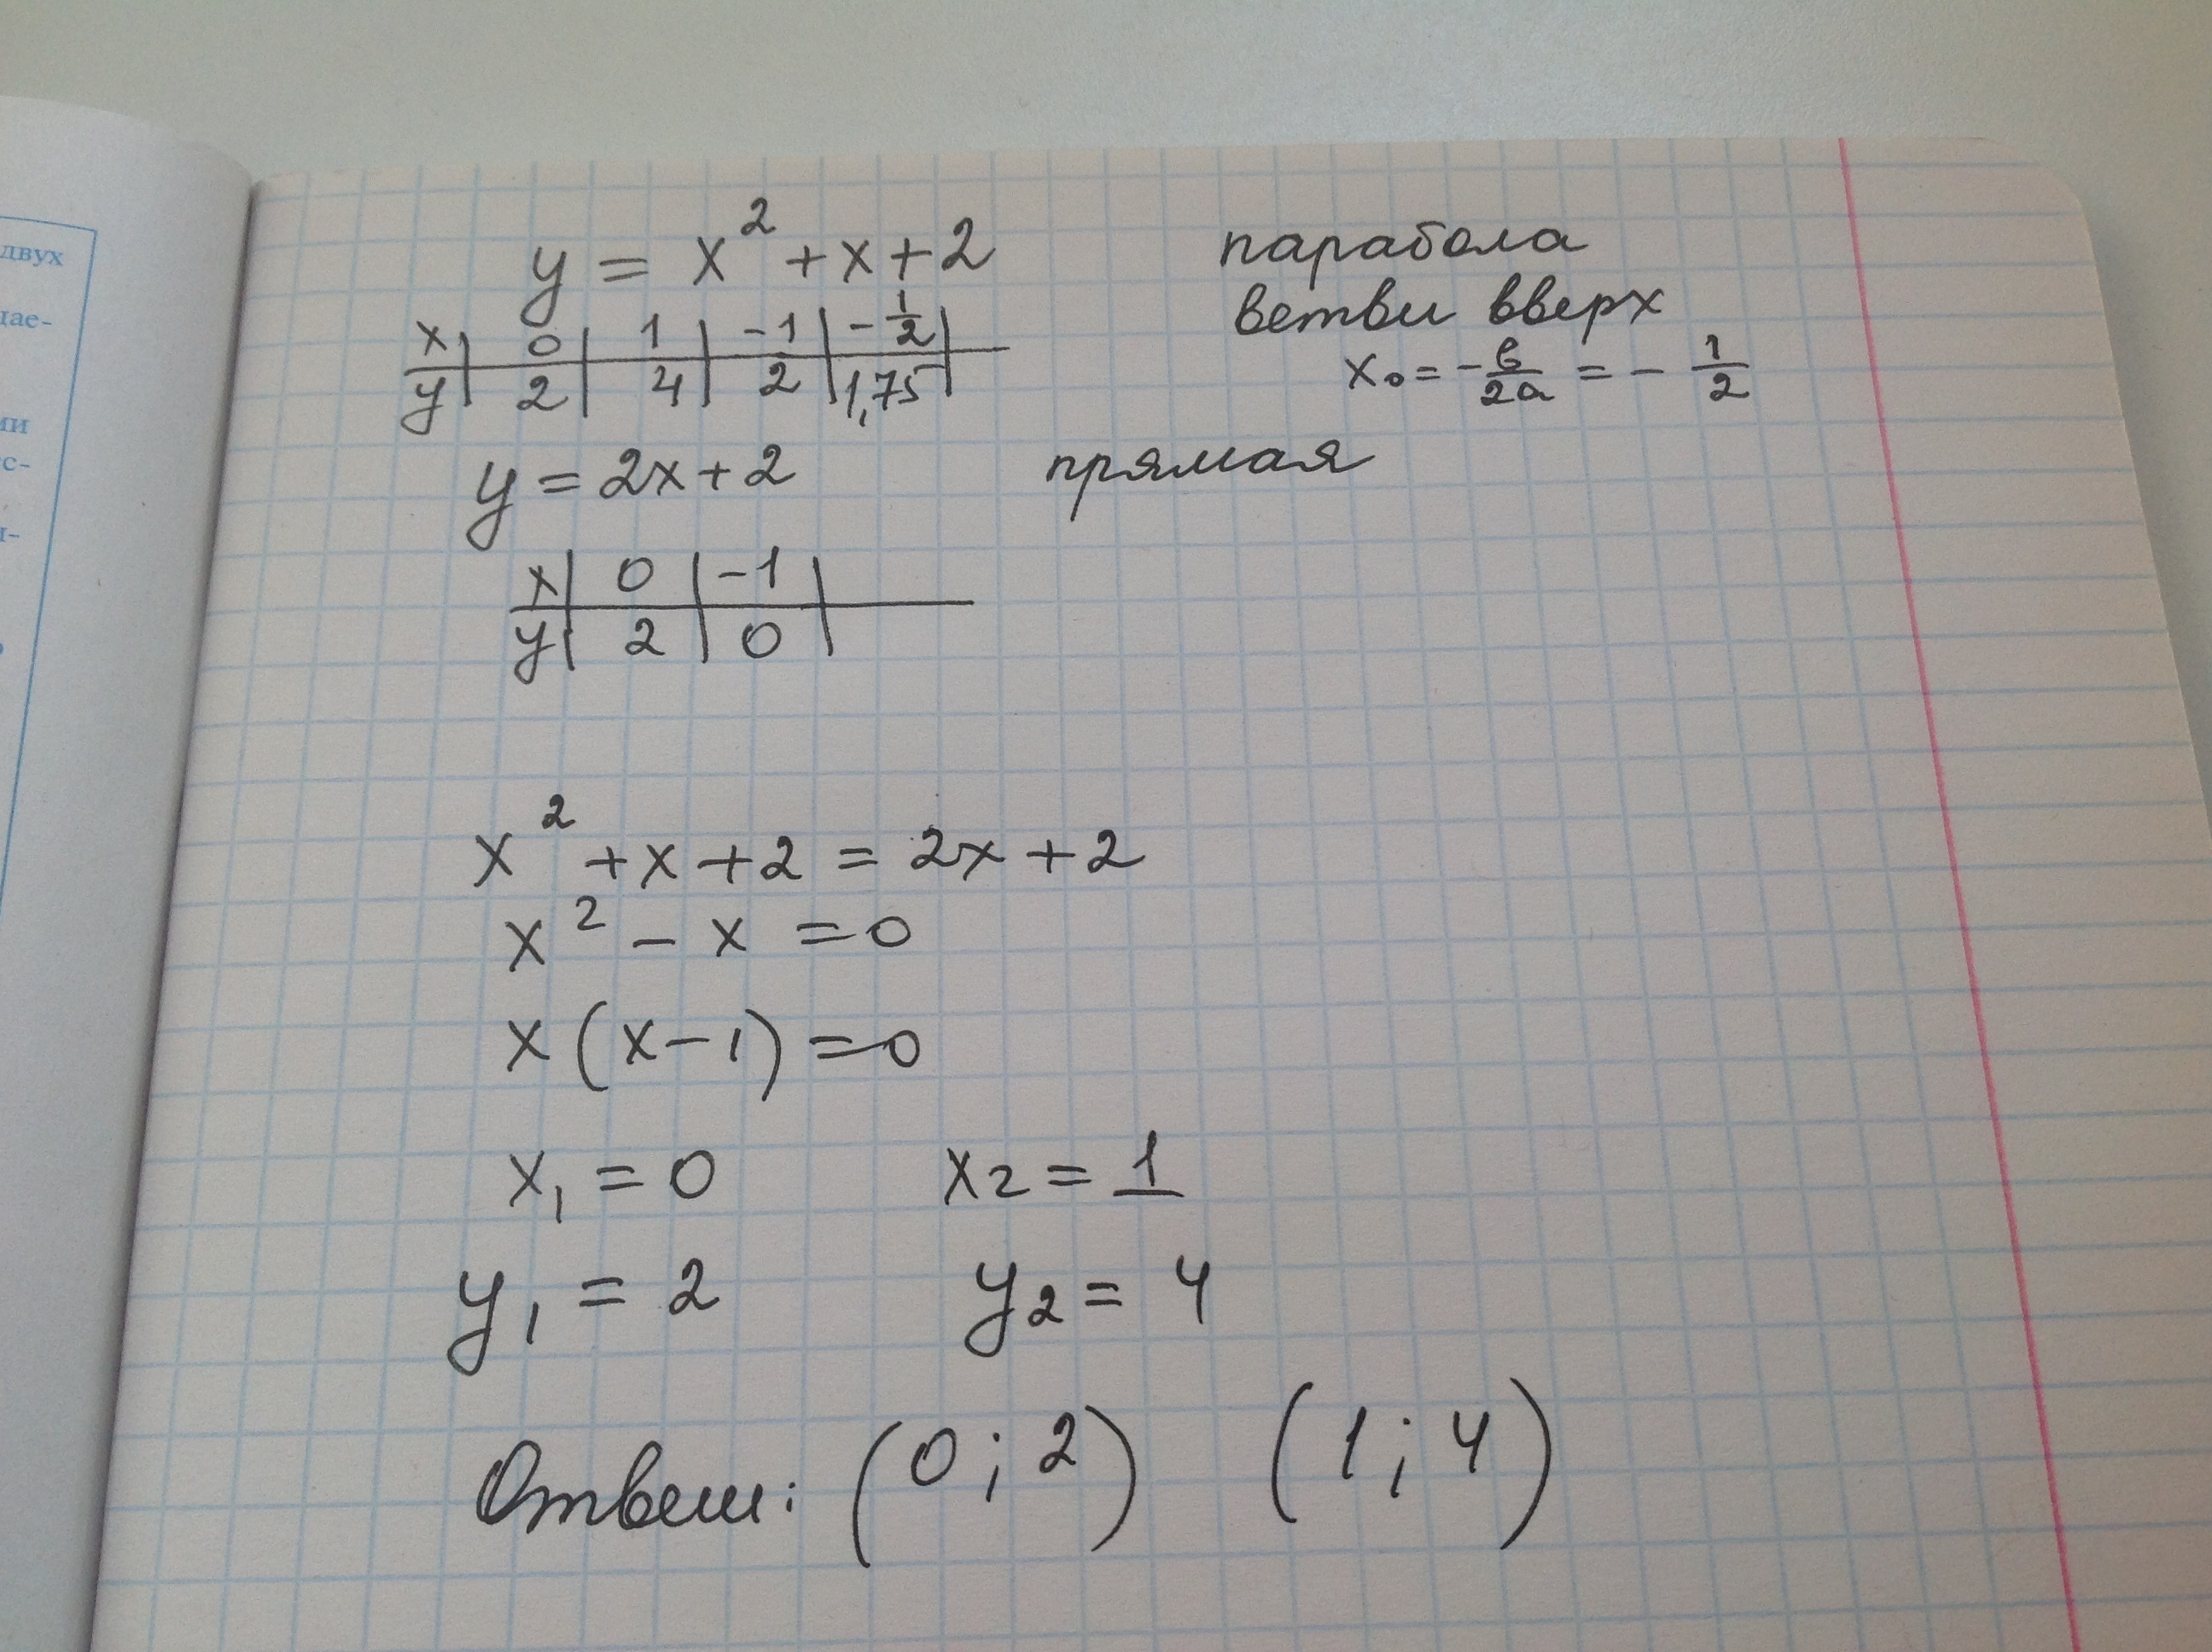 двух
дае-
ми
с-
y = x² + x + 2
парабола
ветви вверх
x | 0 | 1 | -1 | -1/2 |
y | 2 | 4 | 2 | 1,75 |
x₀ = -в/2a = -1/2
y = 2x + 2
прямая
x | 0 | -1 |
y | 2 | 0 |
x² + x + 2 = 2x + 2
x² - x = 0
x(x-1) = 0
x₁ = 0 x₂ = 1
y₁ = 2 y₂ = 4
Ответ: (0; 2) (1; 4)